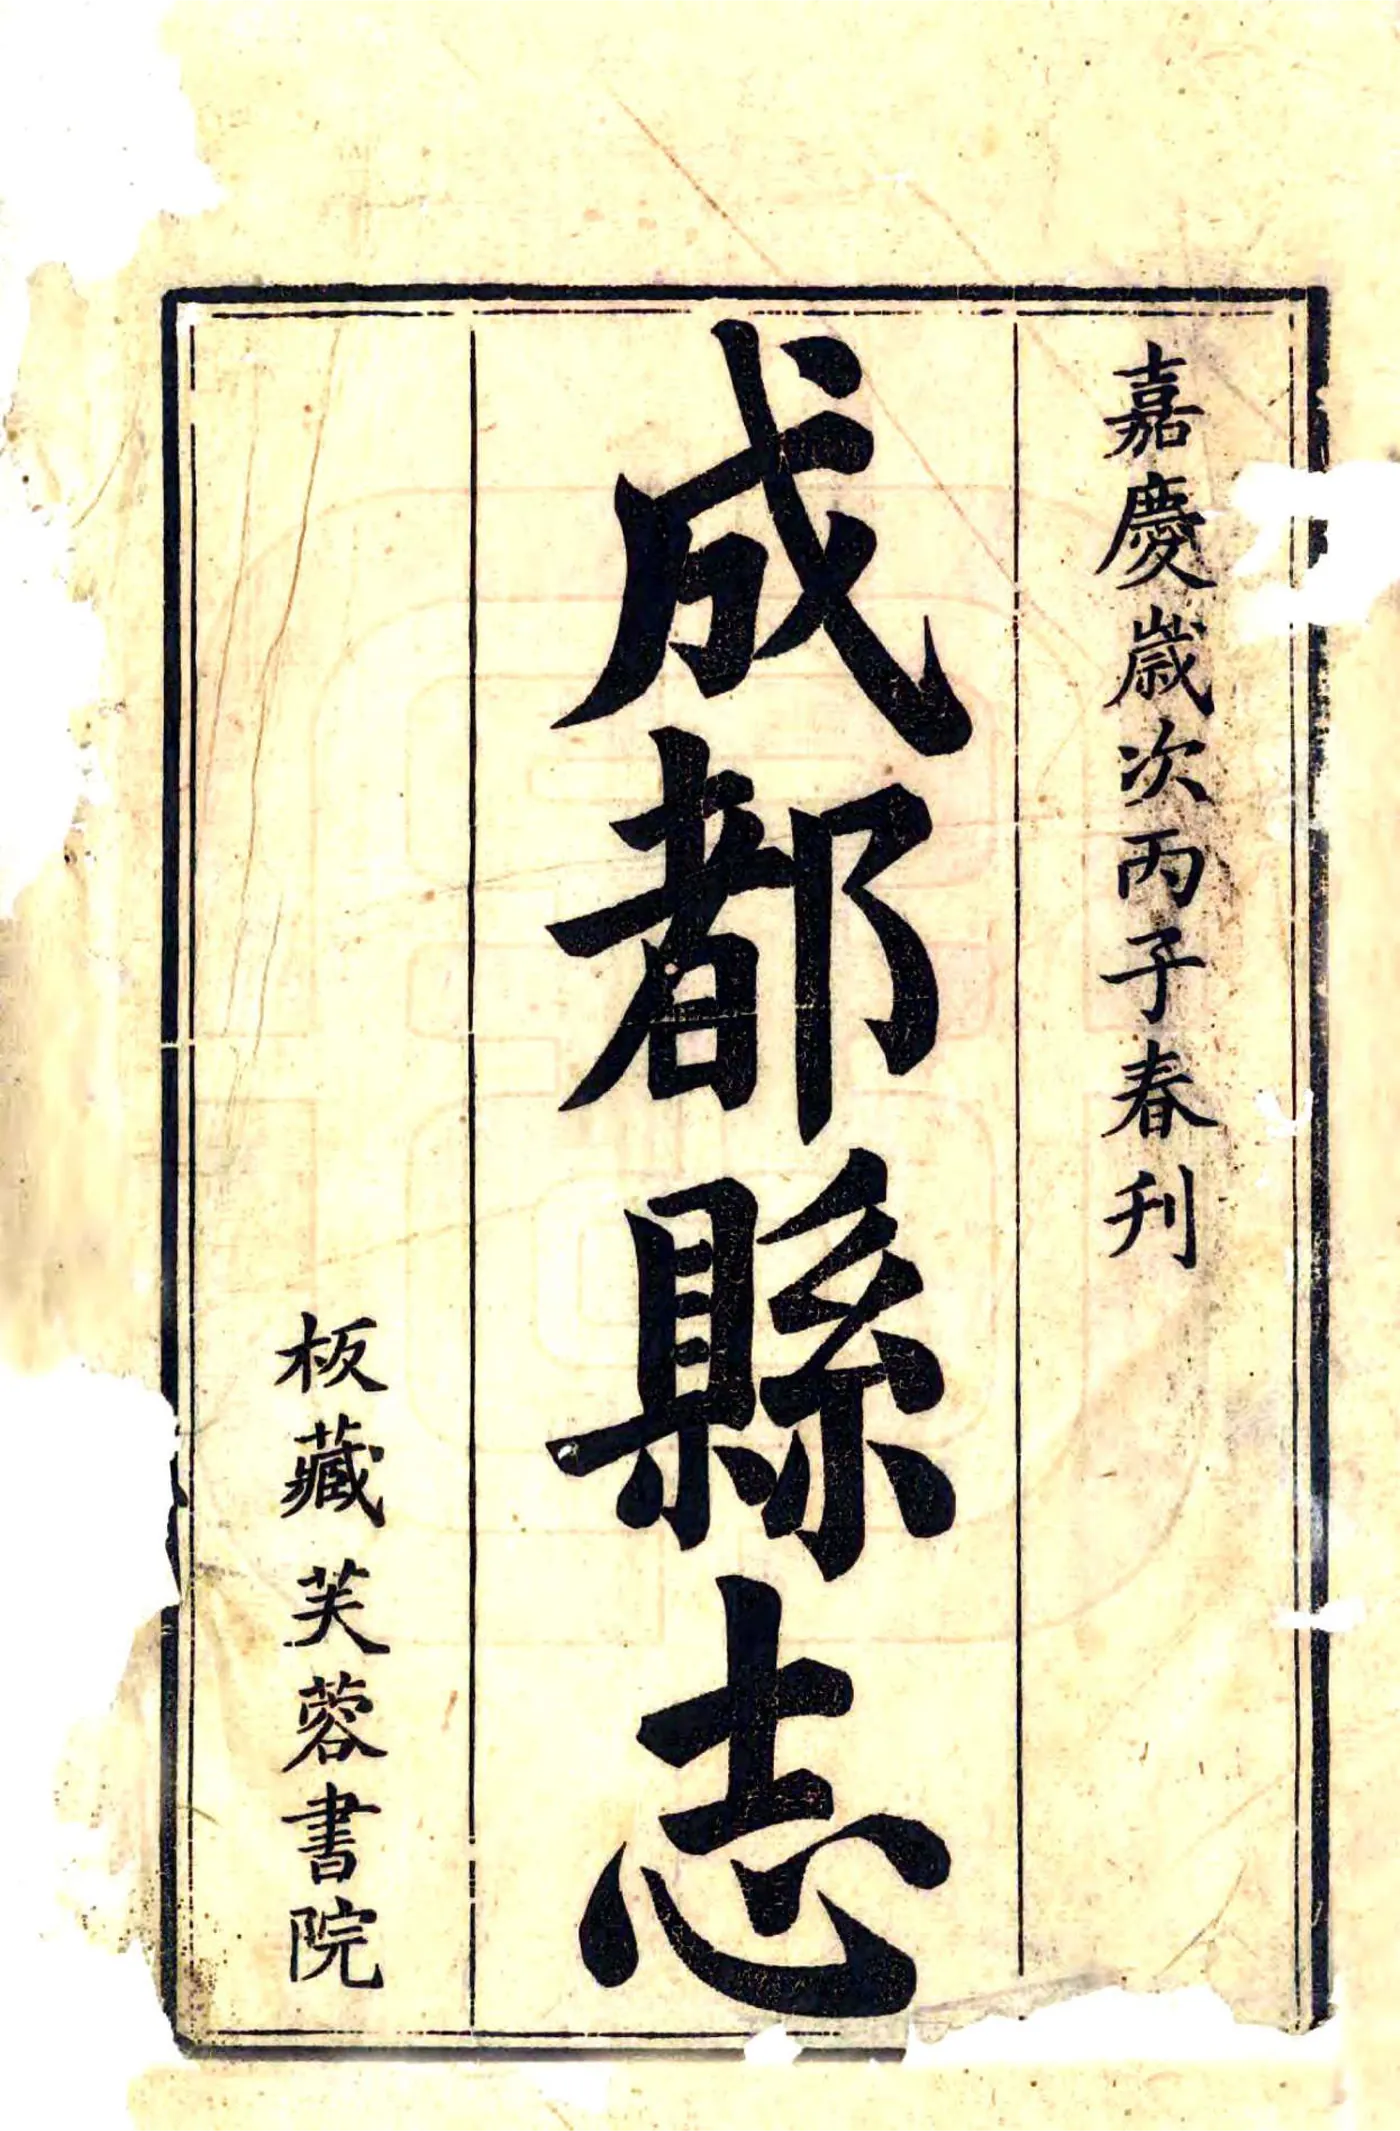 嘉慶歲次丙子春刋
成都縣志
板藏芙蓉書院